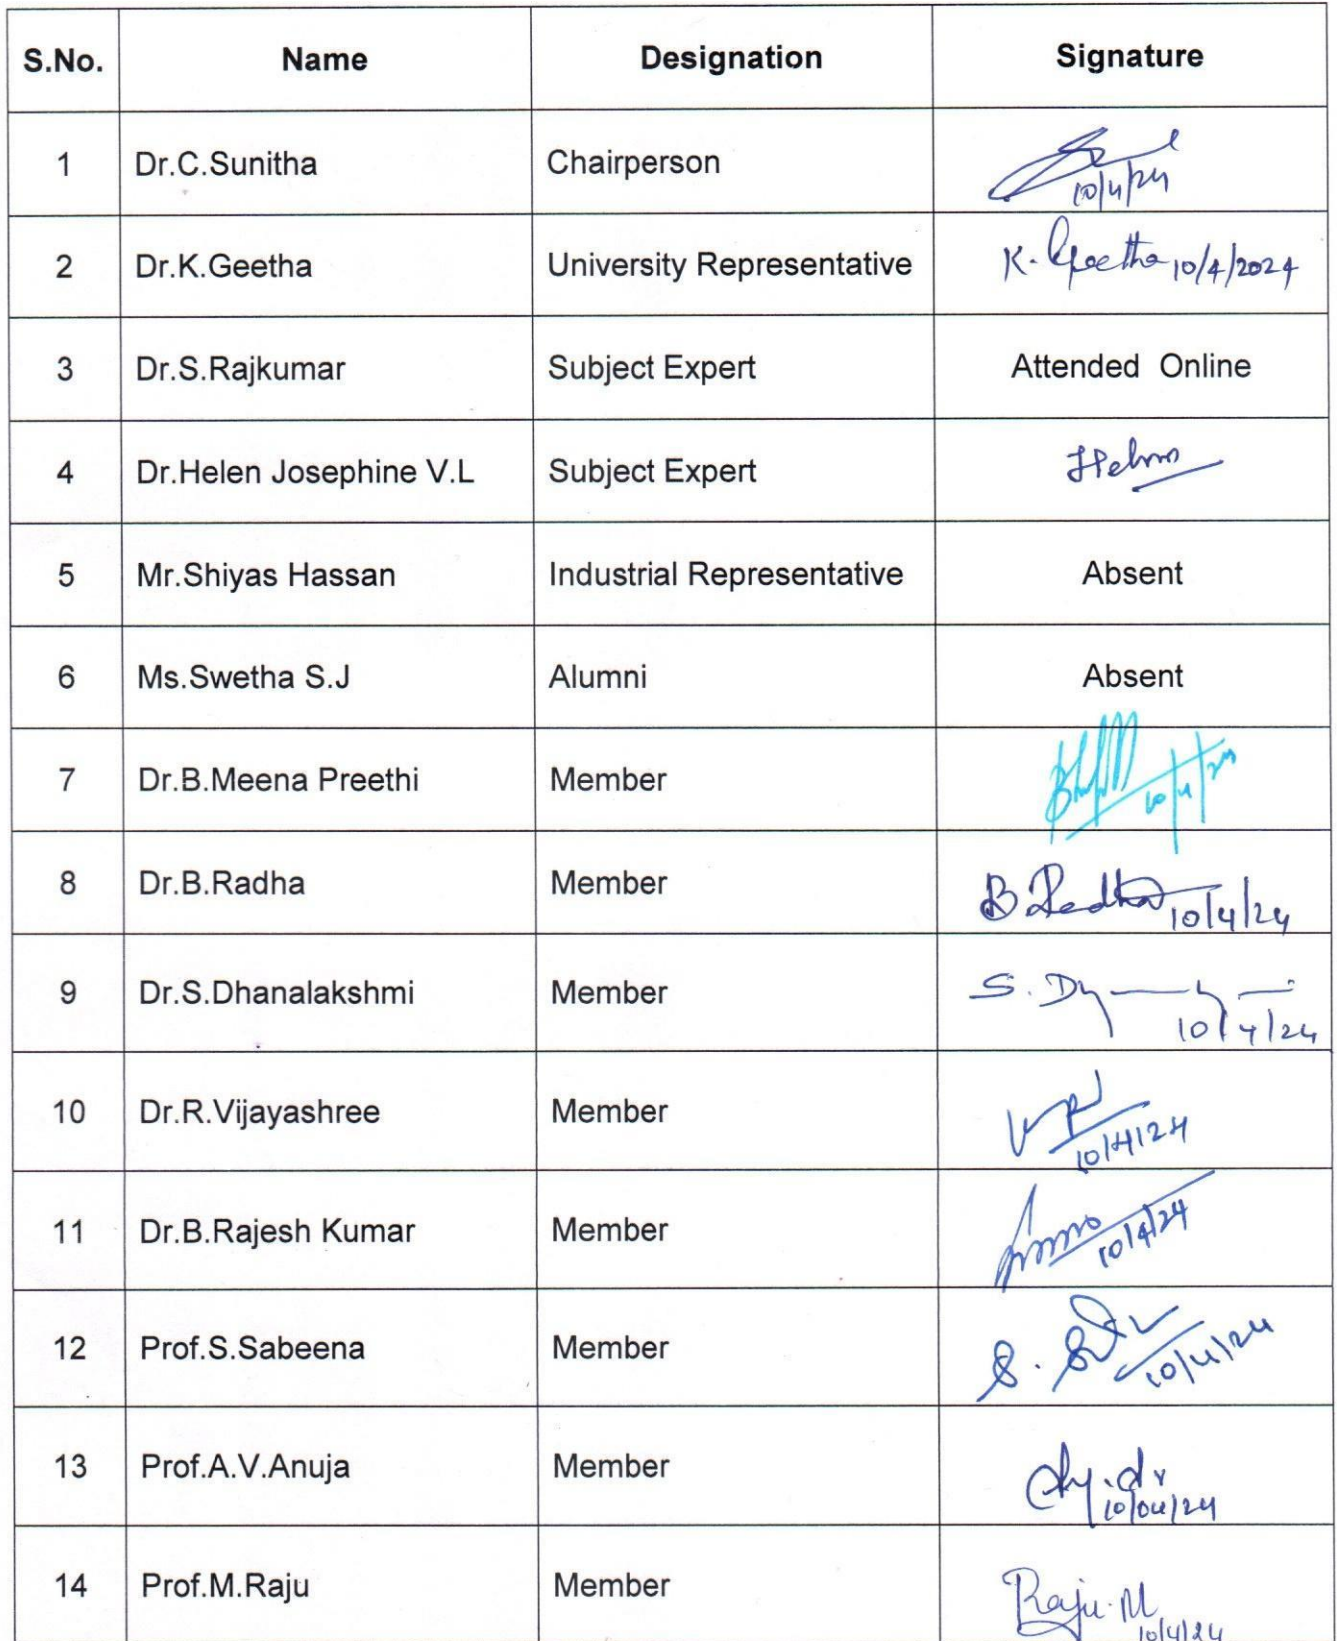 S.No. Name Designation Signature
1 Dr.C.Sunitha Chairperson
10/4/24
2 Dr.K.Geetha University Representative K. Geetha 10/4/2024
3 Dr.S.Rajkumar Subject Expert Attended Online
4 Dr.Helen Josephine V.L Subject Expert Helen
5 Mr.Shiyas Hassan Industrial Representative Absent
6 Ms.Swetha S.J Alumni Absent
7 Dr.B.Meena Preethi Member 10/4/24
8 Dr.B.Radha Member B.Radha 10/4/24
9 Dr.S.Dhanalakshmi Member S.
10/4/24
10 Dr.R.Vijayashree Member
10/4/24
11 Dr.B.Rajesh Kumar Member 10/4/24
12 Prof.S.Sabeena Member S. 10/4/24
13 Prof.A.V.Anuja Member
10/04/24
14 Prof.M.Raju Member Raju.M
10/4/24